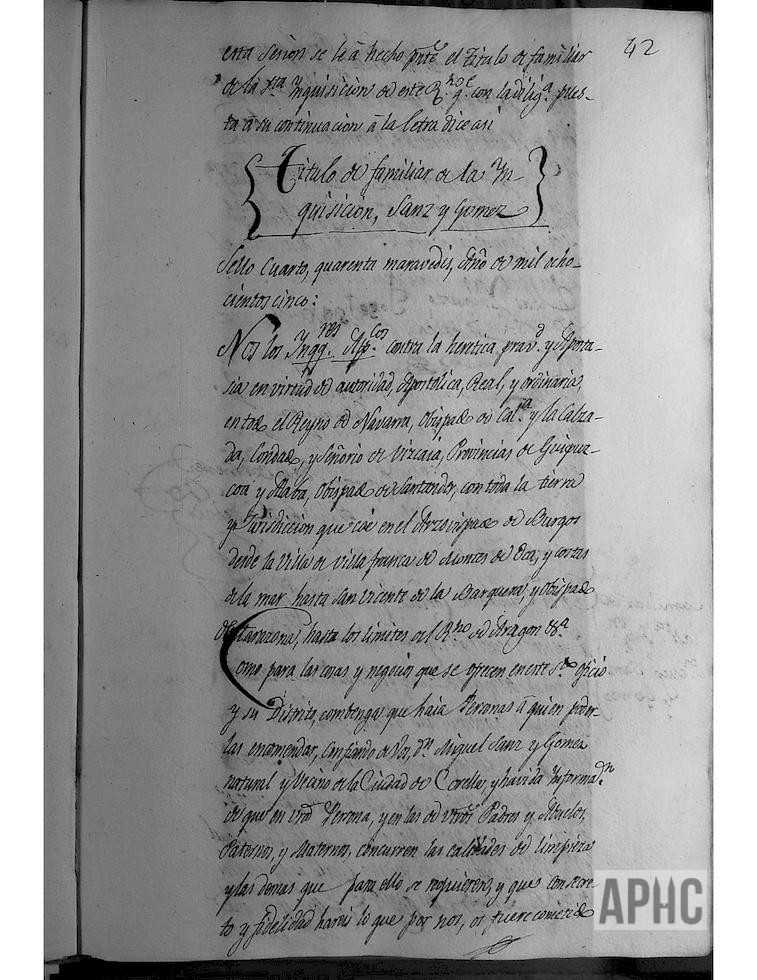 42
esta sesion se le à hecho pnte el titulo de familiar
de la Sta Ynquisicion de este Rno qe con la dilig.a pues-
ta à su continuacion à la letra dice asi
Titulo de familiar de la Yn-
quisicion, Sanz y Gomez
Sello Cuarto, quarenta maravedis, Año de mil ocho-
cientos cinco:
Nos los Ynqq.res App.cos contra la heretica prav.d y Aposta-
sia en virtud de autoridad, Apostolica, Real, y ordinaria,
en todo el Reyno de Navarra, Obispado de Cal.ra y la Calza-
da, Condado, y Señorio de Vizcaia, Provincias de Guipuz-
coa y Alaba, Obispado de Santander, con toda la tierra
y Jurisdicion que cae en el Arzobispado de Burgos
desde la Villa de Villa franca de Montes de Oca, y costas
de la mar hasta San Vicente de la Barquera, y Obispado
de Tarazona, hasta los limites del Rno de Aragon &.a
Como para las cosas y negocios que se ofrecen en este S.to Oficio
y su Distrito, combenga que haia Personas â quien poder-
las encomendar, Confiando de Vos, Dn Miguel Sanz y Gomez
natural y Vecino de la Ciudad de Corella, y havida Informa.on
de que en vra Persona, y en las de vtros Padres y Abuelos,
Paternos, y Maternos, concurren las calidades de limpieza
y las demas que para ello se requieren, y que con secre
to y fidelidad hareis lo que por nos, os fuere cometido
APHC